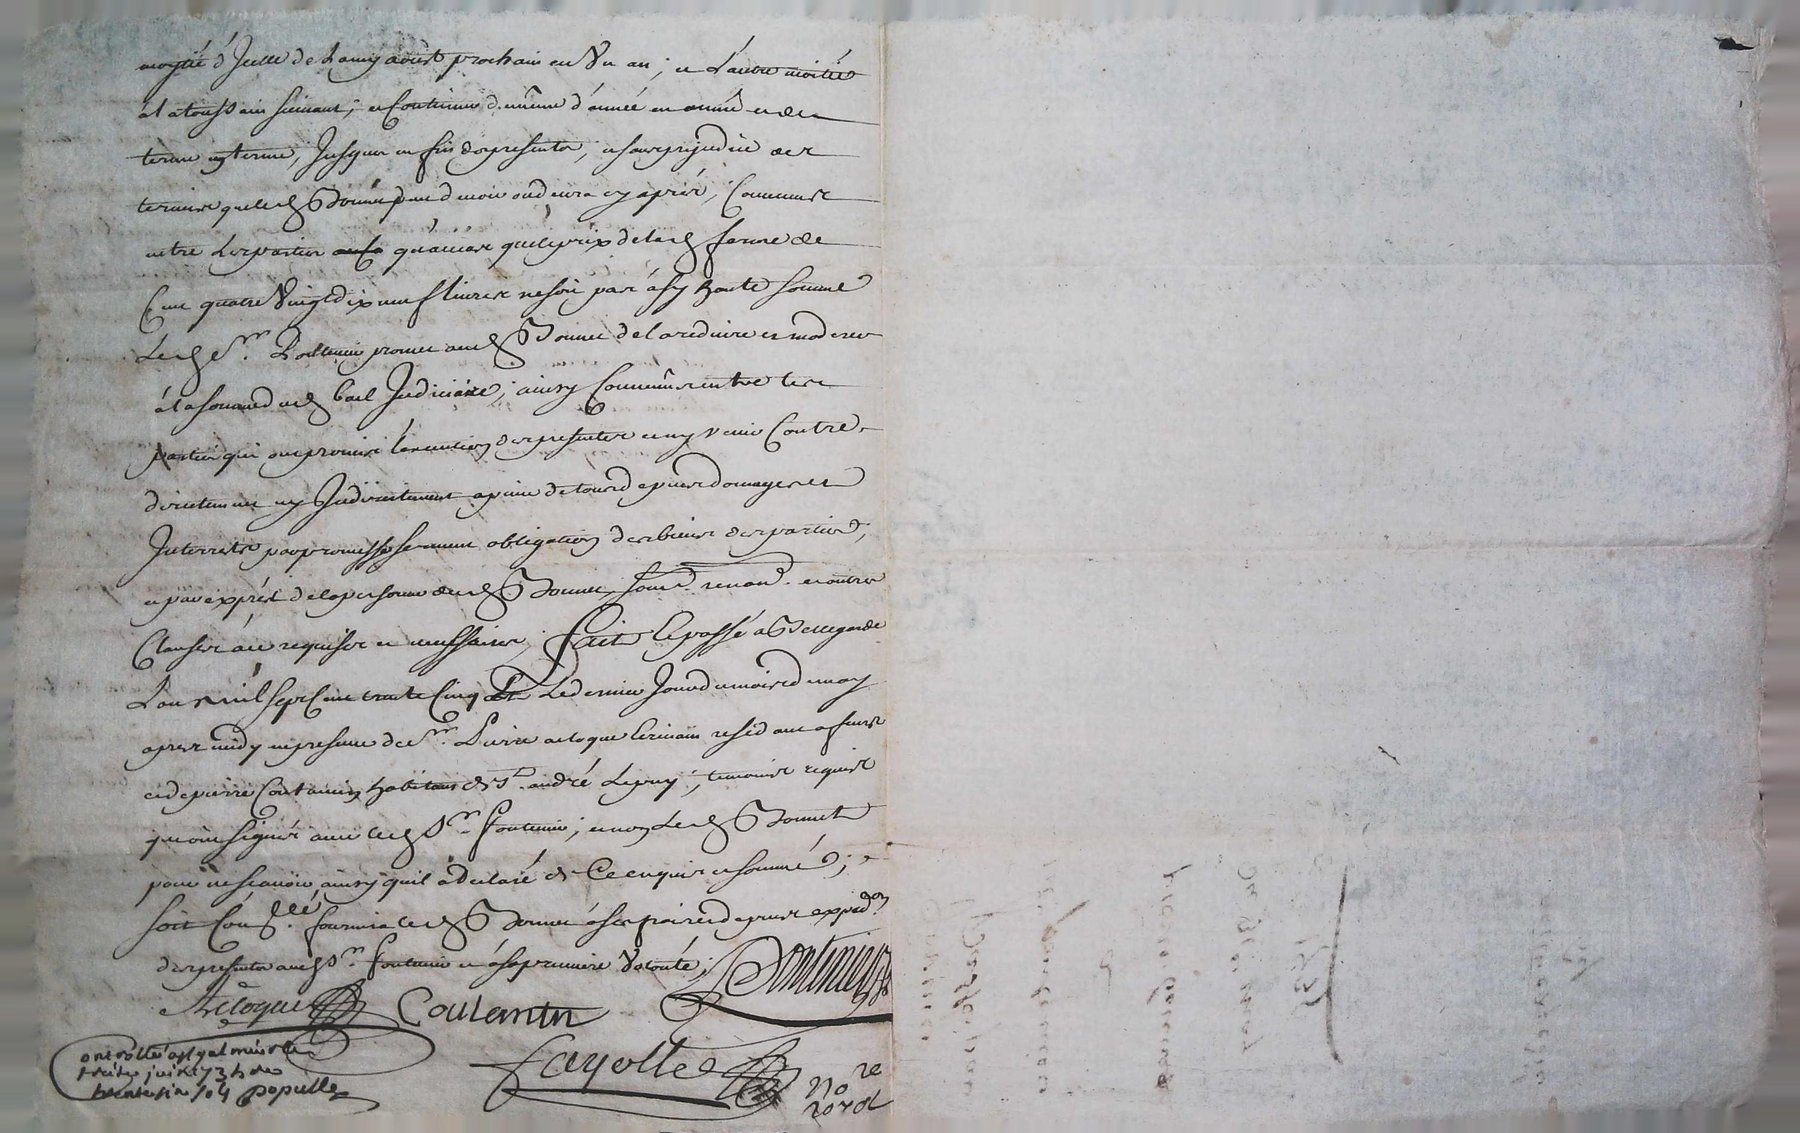 moytié d'Jcelle de l'amy aoust prochain en Vn an; et l'autre moitié
à la toussain suivant; et continuer de même d'année en année et de
terme en terme, jusques en fin des presentes, et sans prejudice des
termes que led Bonnet doit ou devra cy après, Convenus
entre les parties qu'attendu que le prix de lad ferme de
Cent quatre Vingt dix neuf livres ne soit pas à sy haute somme
led sr. promet aud Bonnet de la reduire et moderer
à la somme dud bail Judiciaire; ainsy Convenus entre les
parties qui ont promis l'execution des presentes et n'y venir Contre
directement ny Jndirectement a peine de tous depens domages et
Jnterests par promesse serment obligation des biens des parties,
et par exprès de la personne dud Bonnet, soum. renon. et autres
Clauses au requises et necessaires; fait et passé à Bellegarde
L'an mil sept Cent trente Cinq Le dernier Jour du mois de may
apres midy en presence de sr. Pierre acloque Ecrivain residant a feurs
et de pierre Coulantin habitant de st. andré Lepuy, temoins requis
qui ont signés avec led sr. fontenin; et non led Bonnet
pour ne sçavoir ainsy qu'il a declaré de Ce enquis et sommé;
soit Con. fournira led Bonnet à ses frais et depens expedon
des presentes aud sr. fontenin et à sa premiere Volonté;
Acloque Coulantin
Fayolle nore royal